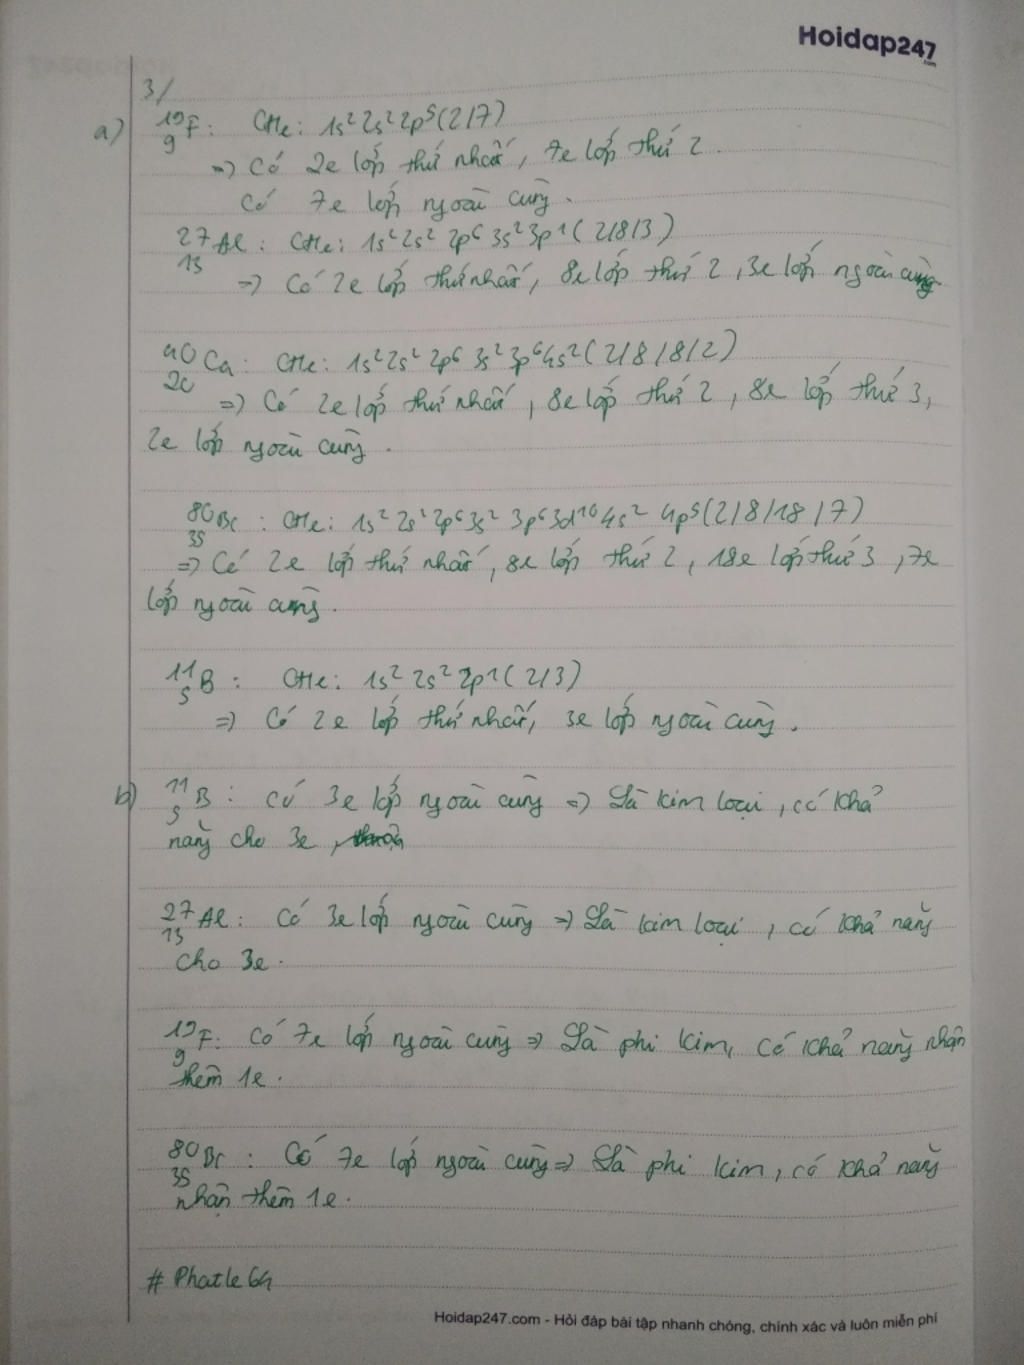 Hoidap247
.com
3/
a) ¹⁹₉F: CHe: 1s² 2s² 2p⁵ (2/7)
=> Có 2e lớp thứ nhất, 7e lớp thứ 2.
Có 7e lớp ngoài cùng.
²⁷₁₃Al: CHe: 1s² 2s² 2p⁶ 3s² 3p¹ (2/8/3)
=> Có 2e lớp thứ nhất, 8e lớp thứ 2, 3e lớp ngoài cùng
⁴⁰₂₀Ca: CHe: 1s² 2s² 2p⁶ 3s² 3p⁶ 4s² (2/8/8/2)
=> Có 2e lớp thứ nhất, 8e lớp thứ 2, 8e lớp thứ 3,
2e lớp ngoài cùng.
⁸⁰₃₅Br: CHe: 1s² 2s² 2p⁶ 3s² 3p⁶ 3d¹⁰ 4s² 4p⁵ (2/8/18/7)
=> Có 2e lớp thứ nhất, 8e lớp thứ 2, 18e lớp thứ 3, 7e
lớp ngoài cùng.
¹¹₅B: CHe: 1s² 2s² 2p¹ (2/3)
=> Có 2e lớp thứ nhất, 3e lớp ngoài cùng.
b) ¹¹₅B: có 3e lớp ngoài cùng => Là kim loại, có khả
năng cho 3e,
²⁷₁₃Al: Có 3e lớp ngoài cùng => Là kim loại, có khả năng
cho 3e.
¹⁹₉F: Có 7e lớp ngoài cùng => Là phi kim, có khả năng nhận
thêm 1e.
⁸⁰₃₅Br: Có 7e lớp ngoài cùng => Là phi kim, có khả năng
nhận thêm 1e.
# Phatle64
Hoidap247.com - Hỏi đáp bài tập nhanh chóng, chính xác và luôn miễn phí